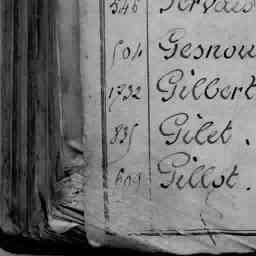 546 Servais
504 Gesnou
1732 Gilbert
835 Gilet.
609 Gillot.